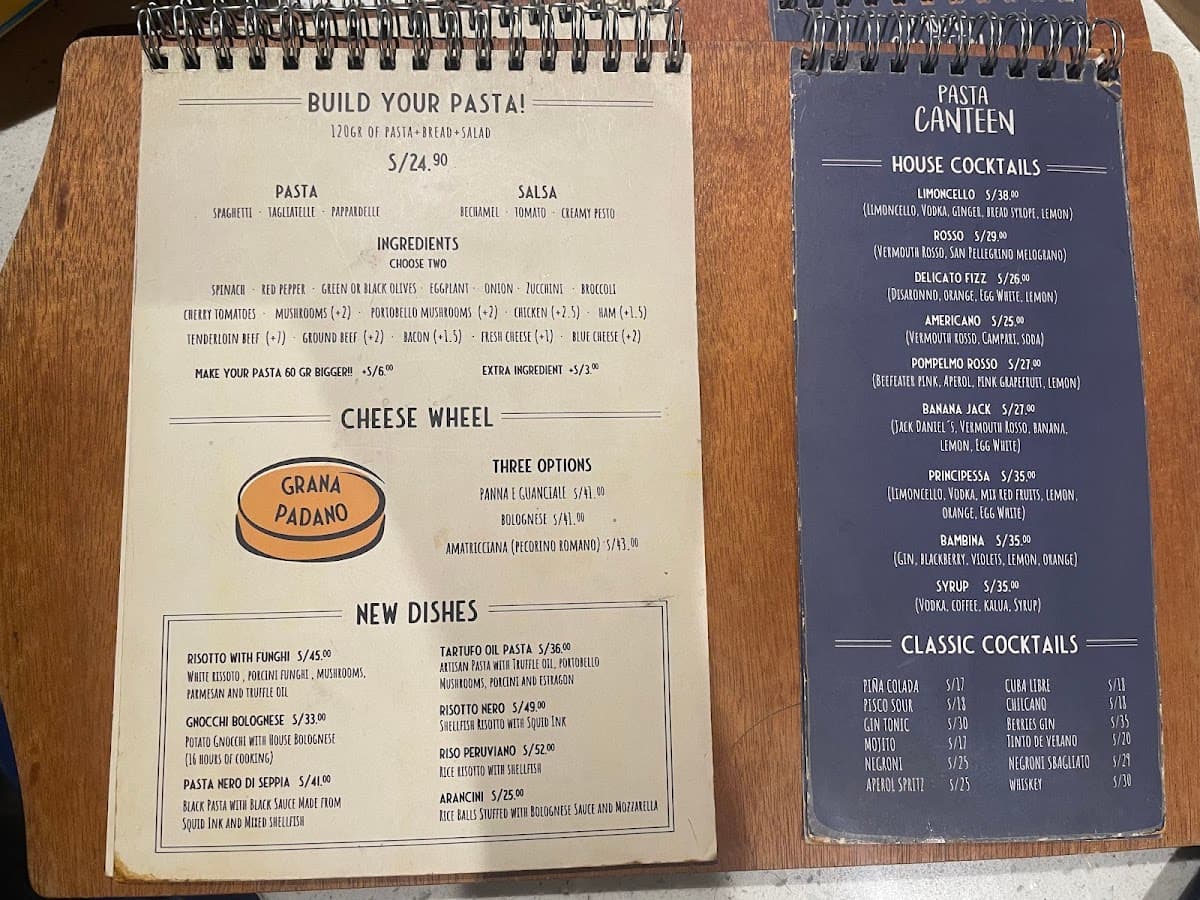 BUILD YOUR PASTA!
120GR OF PASTA+BREAD+SALAD
S/24.90
PASTA
SPAGHETTI · TAGLIATELLE · PAPPARDELLE
SALSA
BECHAMEL · TOMATO · CREAMY PESTO
INGREDIENTS
CHOOSE TWO
SPINACH · RED PEPPER · GREEN OR BLACK OLIVES · EGGPLANT · ONION · ZUCCHINI · BROCCOLI
CHERRY TOMATOES · MUSHROOMS (+2) · PORTOBELLO MUSHROOMS (+2) · CHICKEN (+2.5) · HAM (+1.5)
TENDERLOIN BEEF (+7) · GROUND BEEF (+2) · BACON (+1.5) · FRESH CHEESE (+1) · BLUE CHEESE (+2)
MAKE YOUR PASTA 60 GR BIGGER!! +S/6.00
EXTRA INGREDIENT +S/3.00
CHEESE WHEEL
GRANA
PADANO
THREE OPTIONS
PANNA E GUANCIALE S/41.00
BOLOGNESE S/41.00
AMATRICCIANA (PECORINO ROMANO) S/43.00
NEW DISHES
RISOTTO WITH FUNGHI S/45.00
WHITE RISSOTO , PORCINI FUNGHI , MUSHROOMS,
PARMESAN AND TRUFFLE OIL
GNOCCHI BOLOGNESE S/33.00
POTATO GNOCCHI WITH HOUSE BOLOGNESE
(16 HOURS OF COOKING)
PASTA NERO DI SEPPIA S/41.00
BLACK PASTA WITH BLACK SAUCE MADE FROM
SQUID INK AND MIXED SHELLFISH
TARTUFO OIL PASTA S/36.00
ARTISAN PASTA WITH TRUFFLE OIL, PORTOBELLO
MUSHROOMS, PORCINI AND ESTRAGON
RISOTTO NERO S/49.00
SHELLFISH RISOTTO WITH SQUID INK
RISO PERUVIANO S/52.00
RICE RISOTTO WITH SHELLFISH
ARANCINI S/25.00
RICE BALLS STUFFED WITH BOLOGNESE SAUCE AND MOZZARELLA
PASTA
CANTEEN
HOUSE COCKTAILS
LIMONCELLO S/38.00
(LIMONCELLO, VODKA, GINGER, BREAD SYROPE, LEMON)
ROSSO S/29.00
(VERMOUTH ROSSO, SAN PELLEGRINO MELOGRANO)
DELICATO FIZZ S/26.00
(DISARONNO, ORANGE, EGG WHITE, LEMON)
AMERICANO S/25.00
(VERMOUTH ROSSO, CAMPARI, SODA)
POMPELMO ROSSO S/27.00
(BEEFEATER PINK, APEROL, PINK GRAPEFRUIT, LEMON)
BANANA JACK S/27.00
(JACK DANIEL´S, VERMOUTH ROSSO, BANANA,
LEMON, EGG WHITE)
PRINCIPESSA S/35.00
(LIMONCELLO, VODKA, MIX RED FRUITS, LEMON,
ORANGE, EGG WHITE)
BAMBINA S/35.00
(GIN, BLACKBERRY, VIOLETS, LEMON, ORANGE)
SYRUP S/35.00
(VODKA, COFFEE, KALUA, SYRUP)
CLASSIC COCKTAILS
PIÑA COLADA S/17
PISCO SOUR S/18
GIN TONIC S/30
MOJITO S/17
NEGRONI S/25
APEROL SPRITZ S/25
CUBA LIBRE S/18
CHILCANO S/18
BERRIES GIN S/35
TINTO DE VERANO S/20
NEGRONI SBAGLIATO S/29
WHISKEY S/30